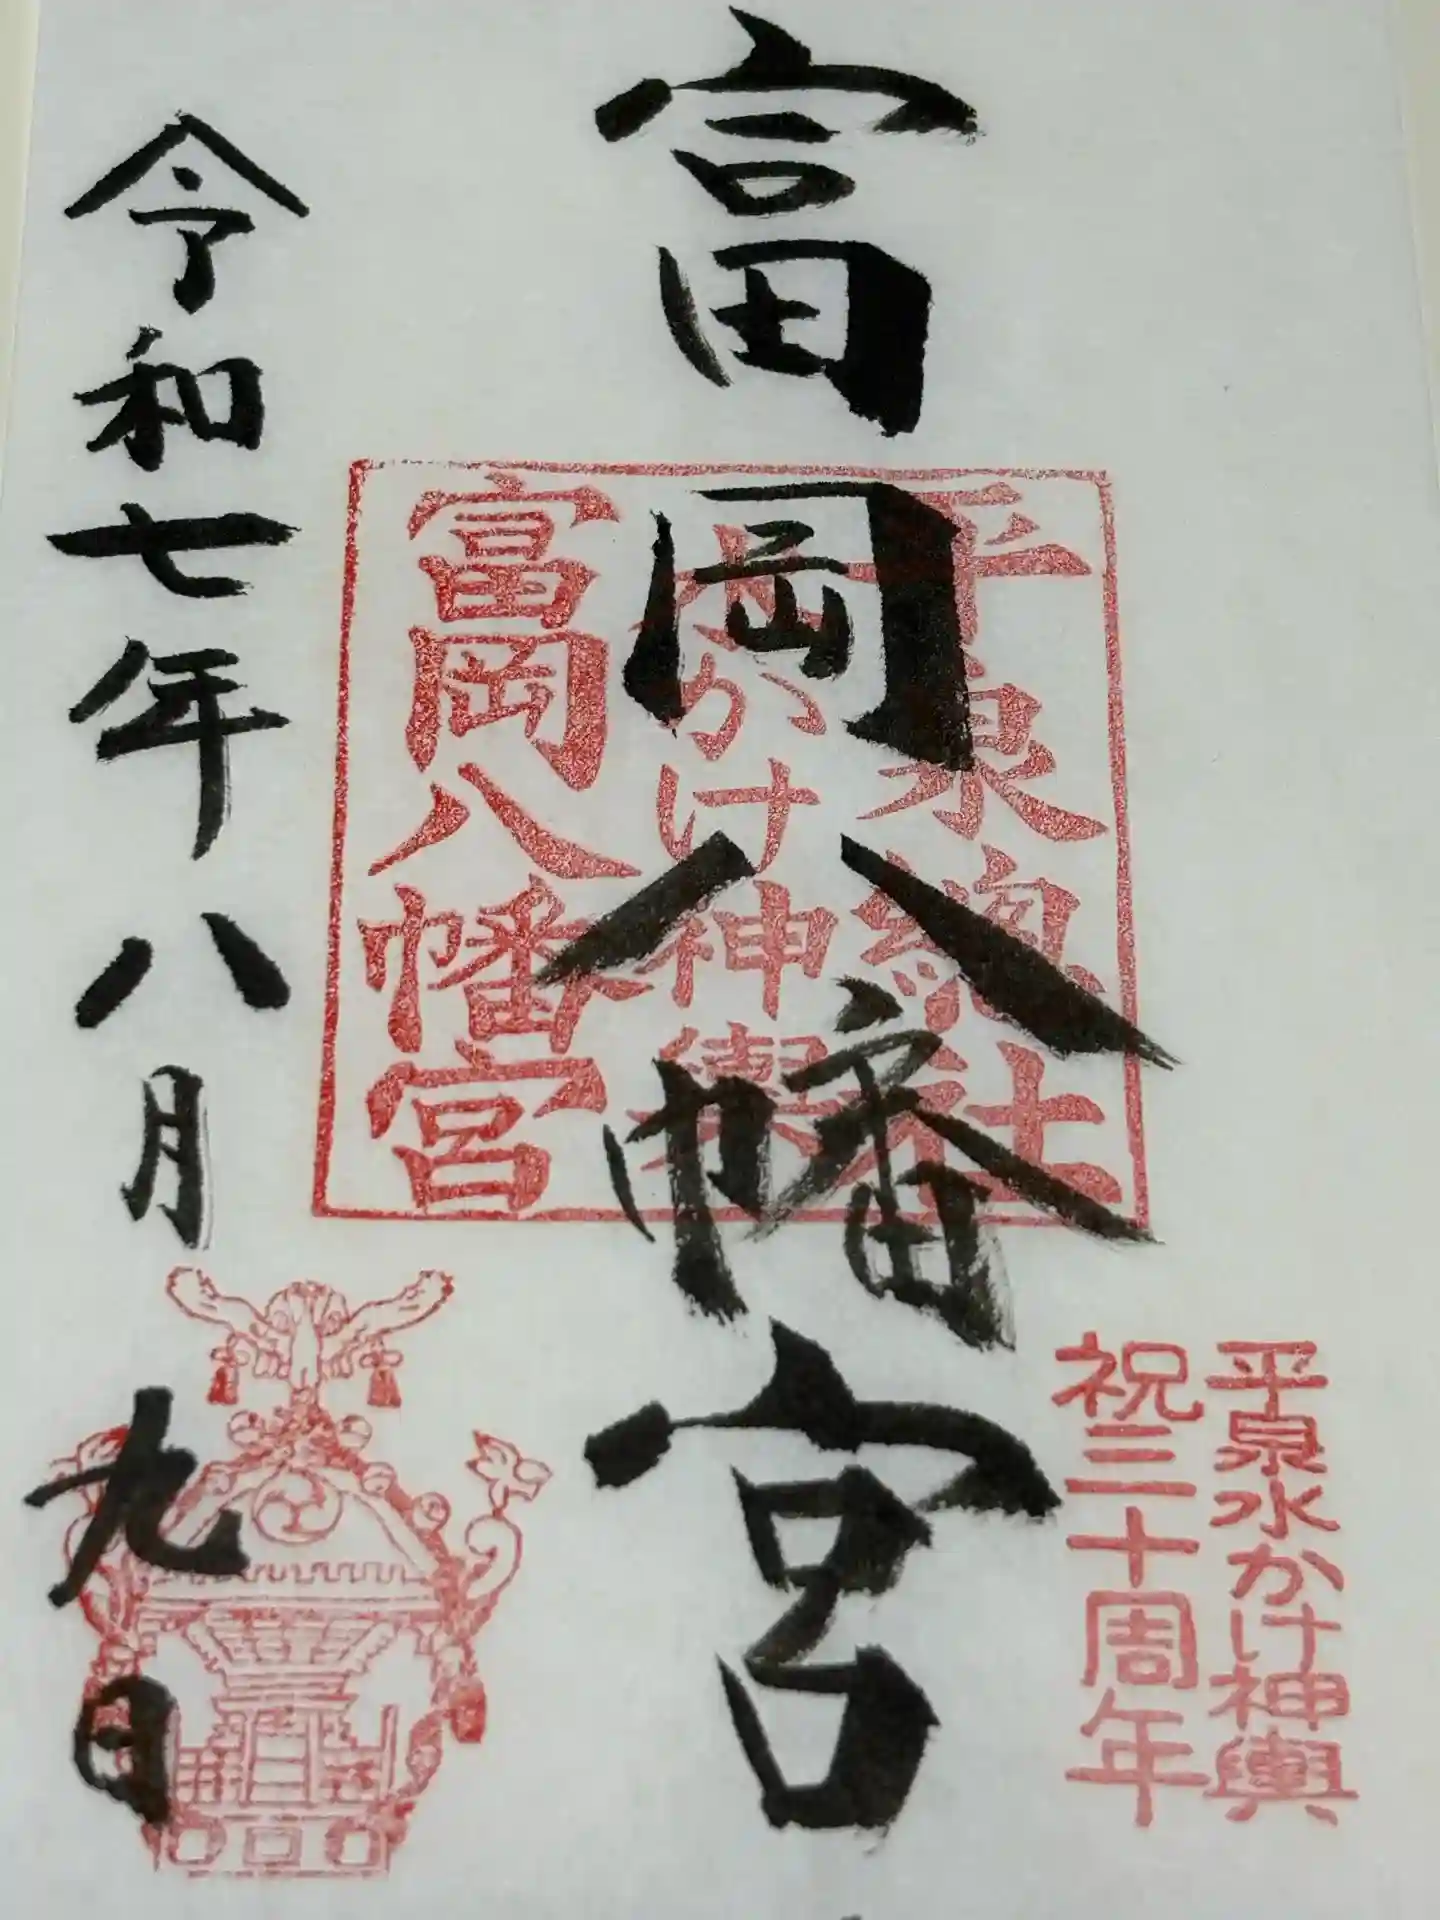 平泉水かけ神輿
祝三十周年
富岡八幡宮
平泉總社
水かけ神輿
富岡八幡宮
令和七年八月九日